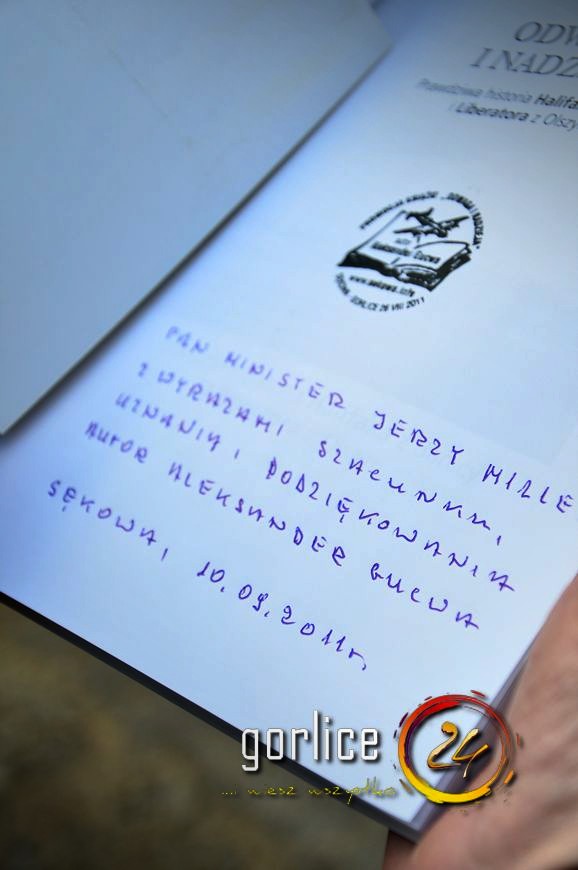 ODW
I NADZ
Prawdziwa historia Halifa
i Liberatora z Olszy
Aleksander Gucwa
www.sekowa.info
GORLICE 26 VIII 2011
PAN MINISTER JERZY MILLE
Z WYRAZAMI SZACUNKU,
UZNANIA I PODZIĘKOWANIA
AUTOR ALEKSANDER GUCWA
SĘKOWA, 10.09.2011r.
gorlice 24
.... wiesz wszystko